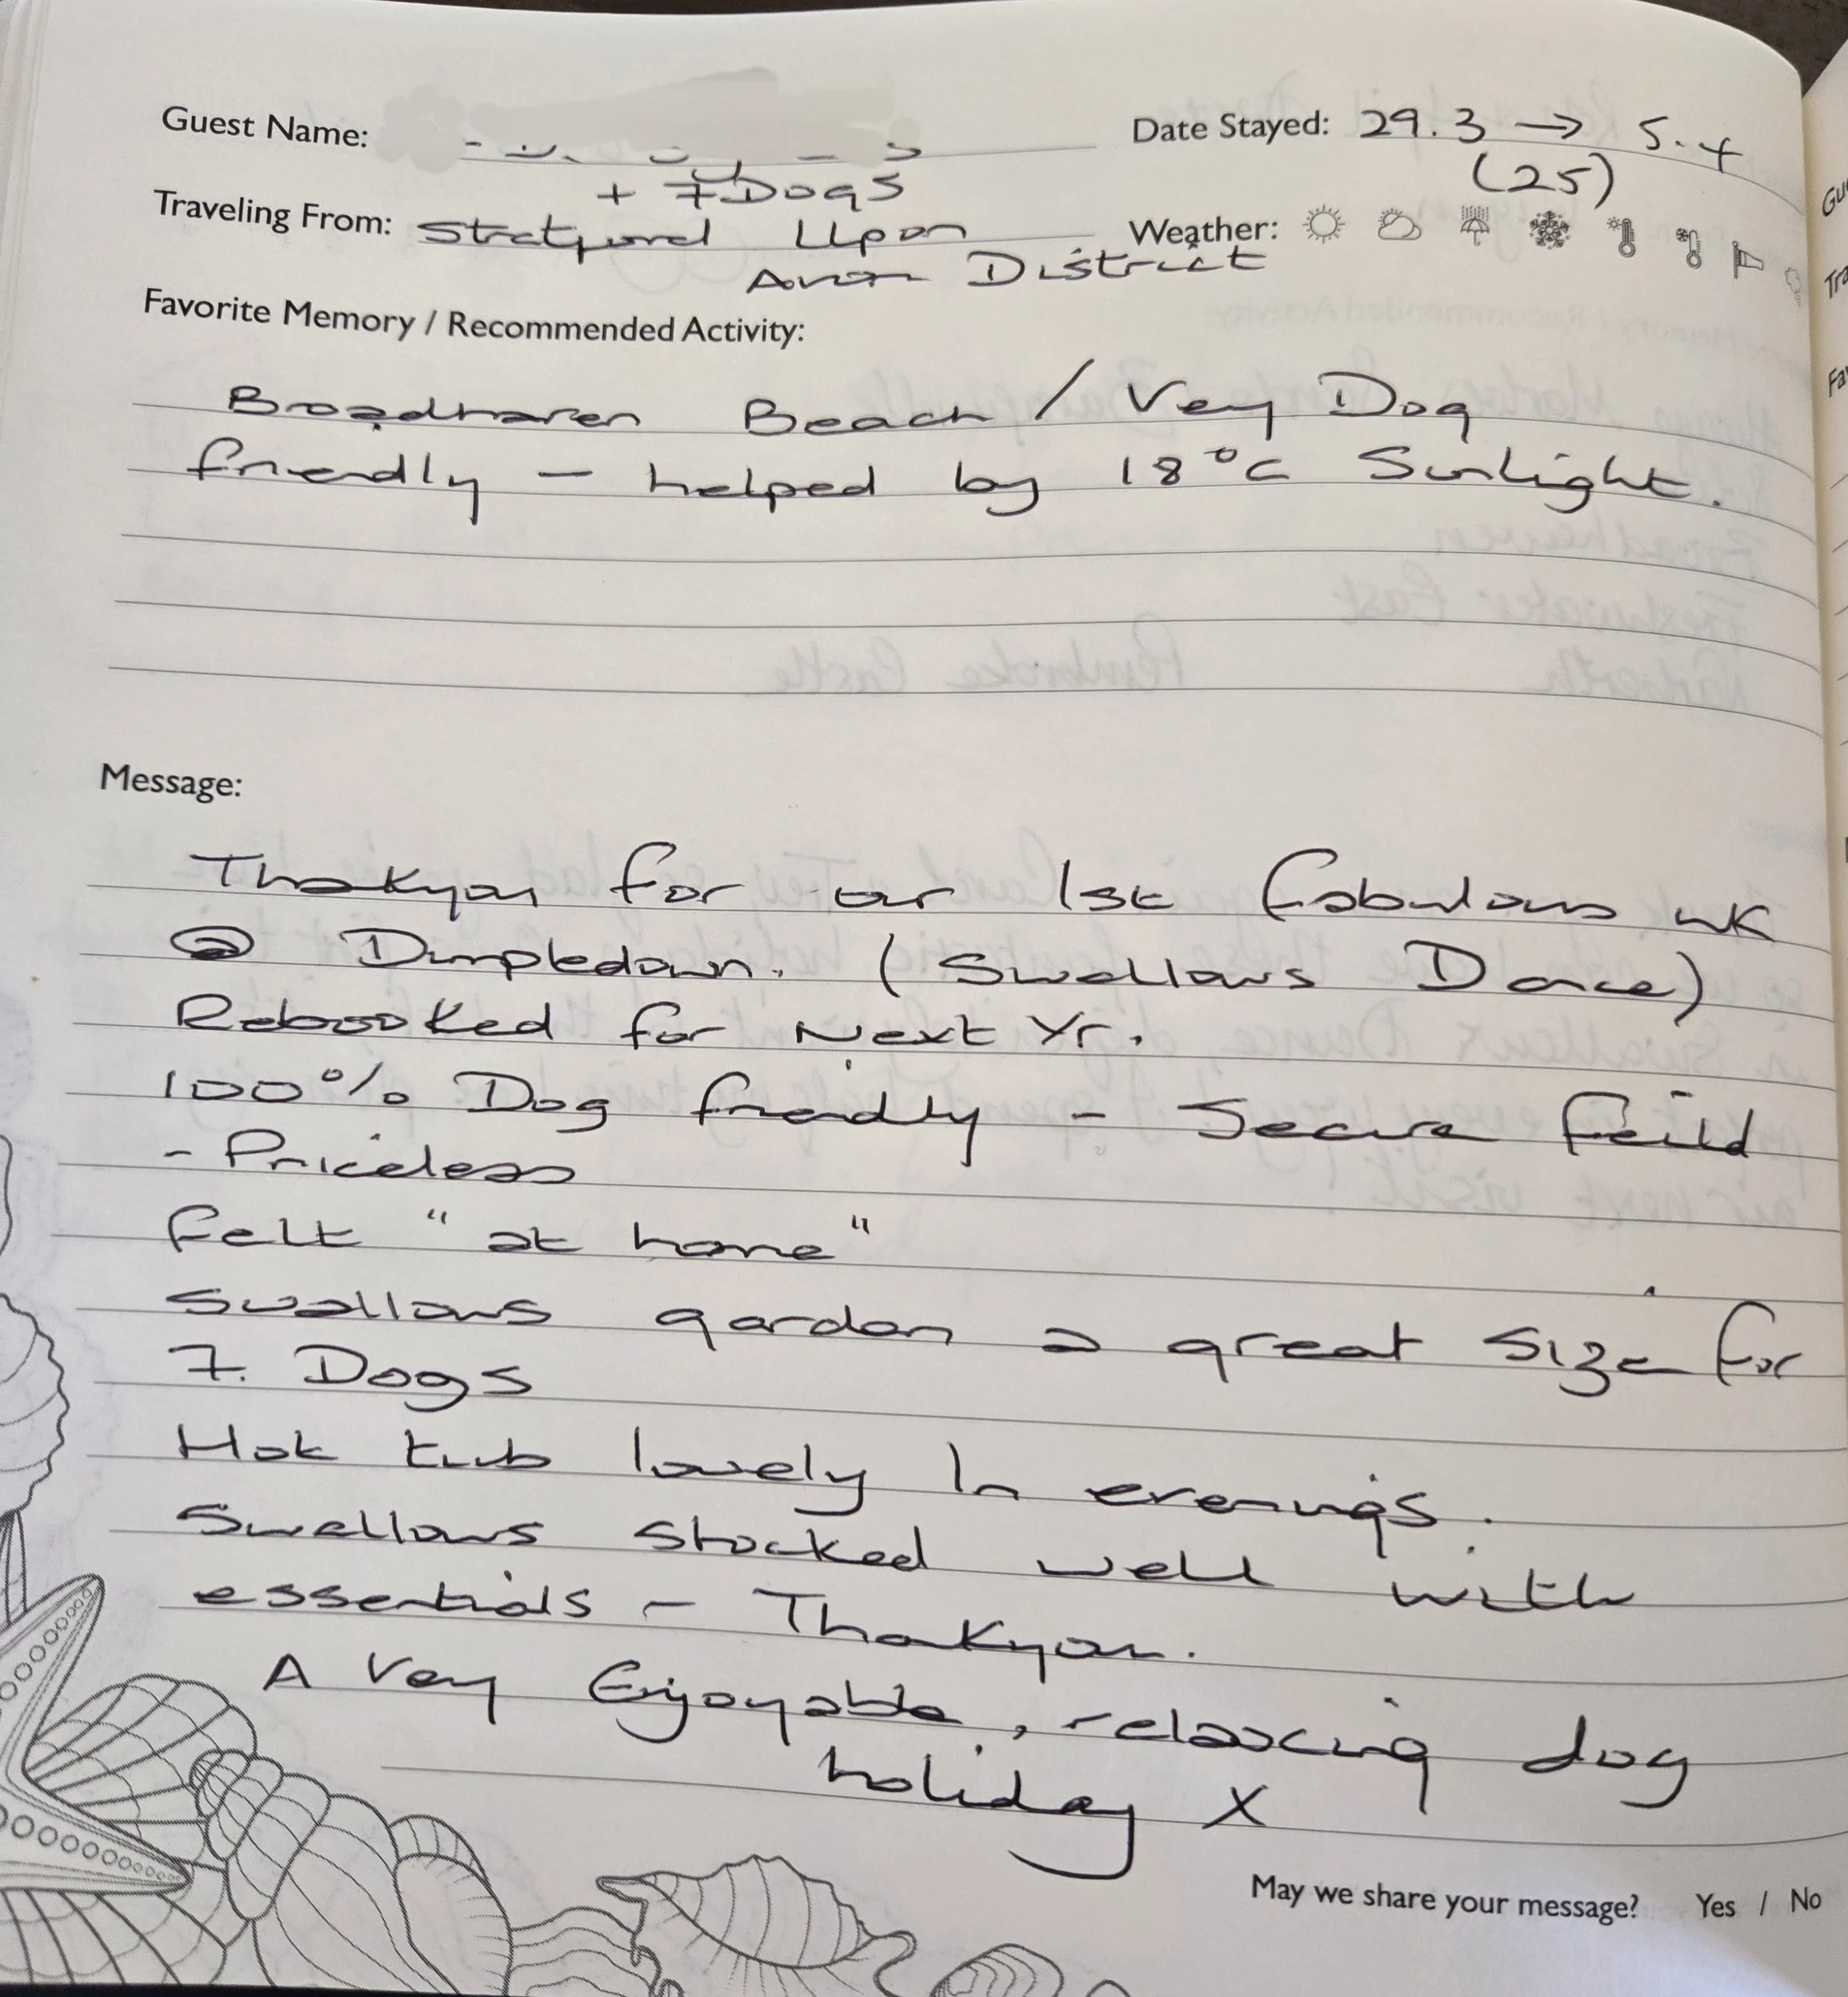 Guest Name:
Date Stayed: 29.3 → 5.4
(25)
+ 7 Dogs
Traveling From: Stratford Upon
Avon District
Weather:
Favorite Memory / Recommended Activity:
Broadhaven Beach / Very Dog
friendly - helped by 18°c Sunlight.
Message:
Thankyou for our 1st fabulous wk
@ Dumpledown. (Swallows Dance)
Rebooked for Next Yr.
100% Dog friendly - Secure feild
- Priceless
felt "at home"
Swallows garden a great size for
7. Dogs
Hot tub lovely In evenings.
Swallows stocked well with
essentials - Thankyou.
A Very Enjoyable, relaxing dog
holiday X
May we share your message? Yes / No